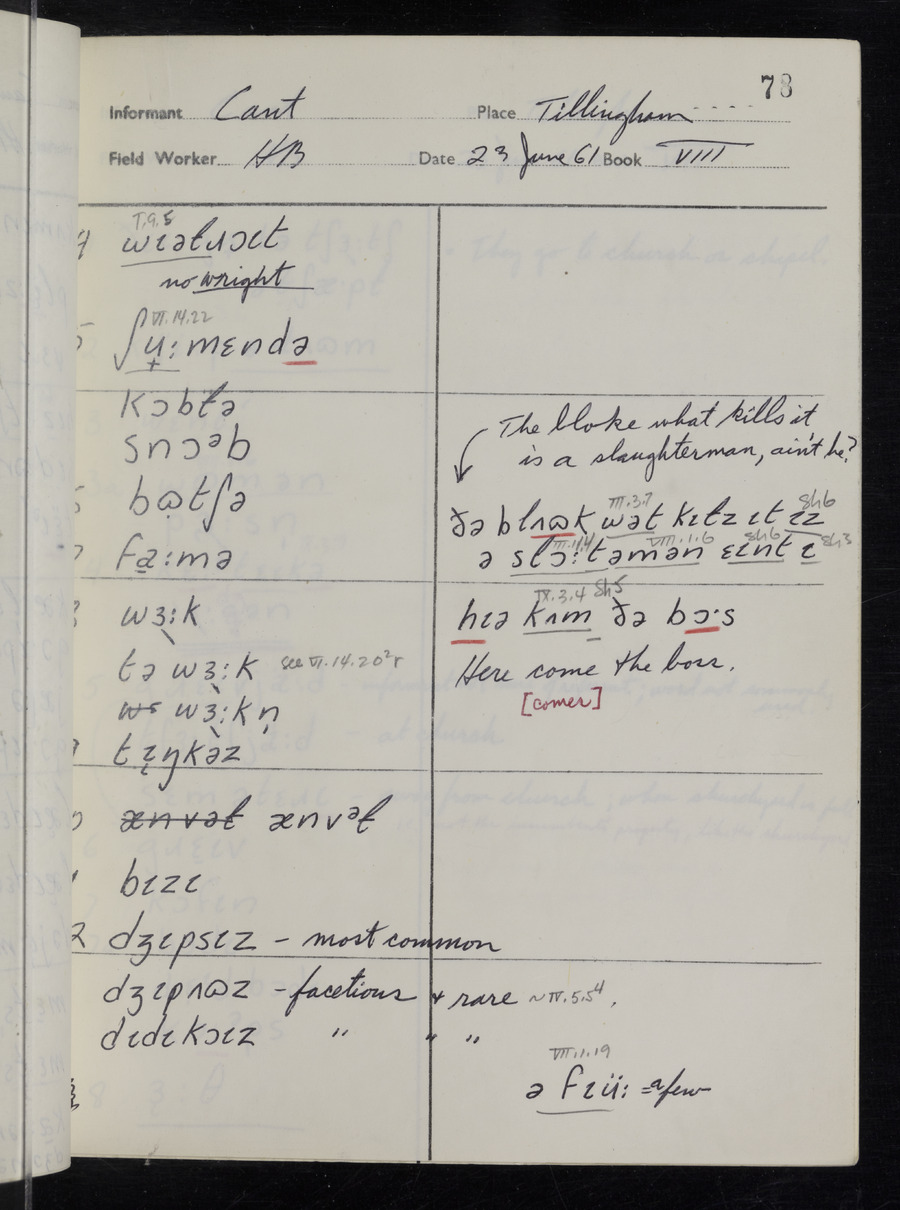 78
Informant Cant Place Tillingham
Field Worker HB Date 23 June 61 Book VIII
I.9.5
wɩəɫʌɔɩt
no wright
VI.14.22
ʃʉ:mɛndə
kɔbɫə
snɔᵊb
bɷtʃə
fa̠:mə
wɜ:k
tə wɜ:k see VI.14.20²r
wɜ:kn̩
tɩŋkəz
ænvəɫ ænvᵊɫ
bɩzɩ
2 dʒɩpsɩz - most common
dʒɩpʌɷz - facetious + rare ~ IV.5.5⁴.
dɩdɩkɔɩz " " "
The bloke what kills it
is a slaughterman, ain't he?
III.3.7 Sh6
ðə blʌɷk wət kɩɫz ɩt ɩz
III.11.4 VIII.1.6 Sh6 Sh3
ə slɔ:təmən ɛɩnt ɩ
IX.3.4 Sh5
hɩə kʌm ðə bɔ·s
Here come the boss.
[comer]
VII.1.19
ə fɩü: = a few